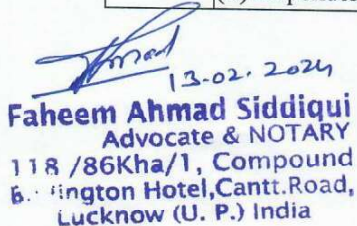 13-02-2024
Faheem Ahmad Siddiqui
Advocate & NOTARY
118 /86Kha/1, Compound
Hotel,Cantt.Road,
Lucknow (U. P.) India